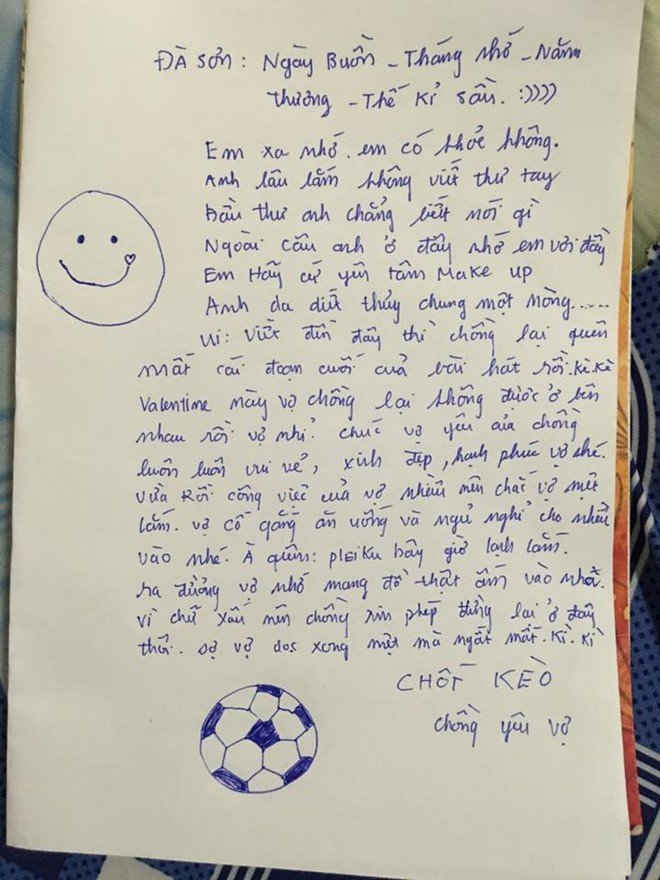 ĐÀ SƠN: NgÀy BuỒn - Tháng nhớ - Năm
thương - Thế Kỉ Sầu. :))))
Em xa nhớ. em có khỏe không.
Anh lâu lắm không viết thư tay
Đầu thư anh chẳng biết nói gì
Ngoài câu anh ở đây nhớ em vơi đầy
Em Hãy cứ yên tâm Make up
Anh da diết thủy chung một lòng......
Ui: viết đến đây thì chồng lại quên
mất cái đoạn cuối của bài hát rồi. kì kì
Valentine này vợ chồng lại không được ở bên
nhau rồi vợ nhỉ. chúc vợ yêu của chồng
luôn luôn vui vẻ, xinh đẹp, hạnh phúc vợ nhé.
vừa Rồi công việc của vợ nhiều nên chắc vợ mệt
lắm. vợ cố gắng ăn uống và ngủ nghỉ cho nhiều
vào nhé. À quên: pleiku bây giờ lạnh lắm.
ra đường vợ nhớ mang đồ thật ấm vào nhá.
vì chữ xấu nên chồng xin phép dừng lại ở đây
thôi. sợ vợ đọc xong mệt mà ngất mất. Kì. kì
CHỐT KÈO
chồng yêu vợ